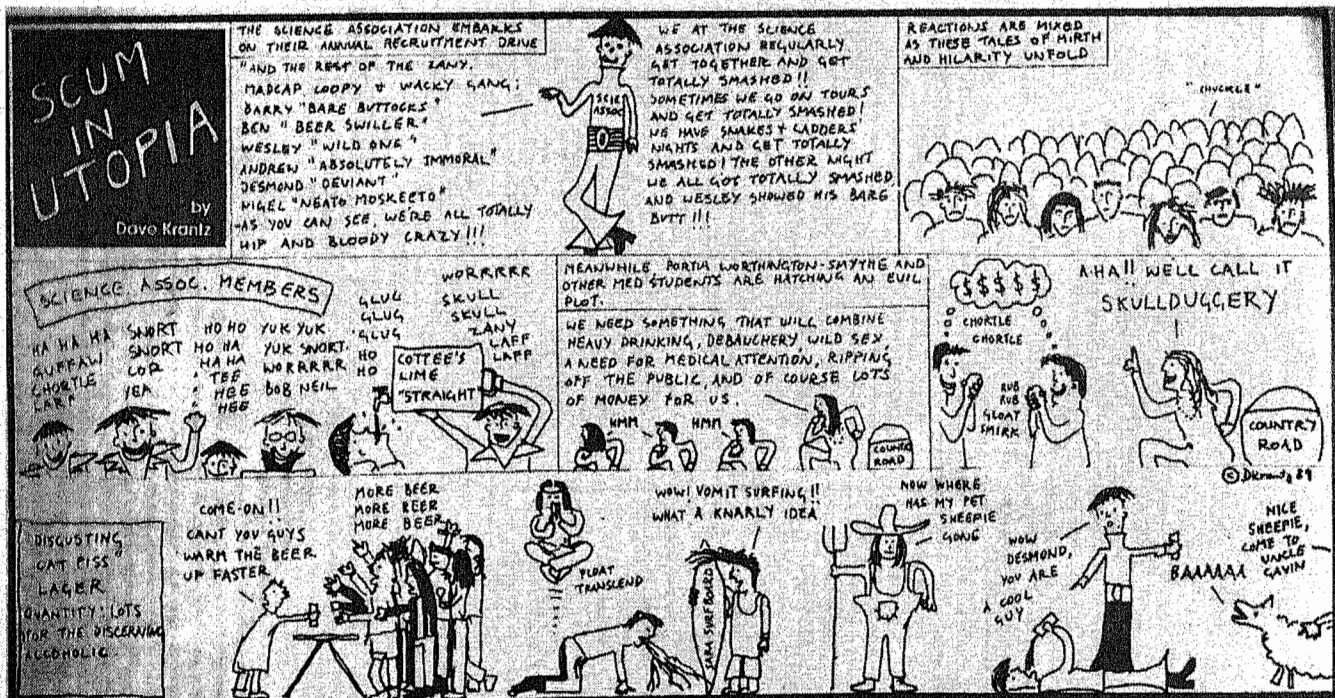 SCUM
IN
UTOPIA
by
Dave Krantz
THE SCIENCE ASSOCIATION EMBARKS
ON THEIR ANNUAL RECRUITMENT DRIVE
"AND THE REST OF THE ZANY,
MADCAP, LOOPY & WACKY GANG:
BARRY "BARE BUTTOCKS"
BEN "BEER SWILLER"
WESLEY "WILD ONE"
ANDREW "ABSOLUTELY IMMORAL"
DESMOND "DEVIANT"
NIGEL "NEATO MOSKEETO"
-AS YOU CAN SEE WE'RE ALL TOTALLY
HIP AND BLOODY CRAZY!!!
SCIE
ASSOC
WE AT THE SCIENCE
ASSOCIATION REGULARLY
GET TOGETHER AND GET
TOTALLY SMASHED!!
SOMETIMES WE GO ON TOURS
AND GET TOTALLY SMASHED!
WE HAVE SNAKES & LADDERS
NIGHTS AND GET TOTALLY
SMASHED! THE OTHER NIGHT
WE ALL GOT TOTALLY SMASHED
AND WESLEY SHOWED HIS BARE
BUTT!!!
REACTIONS ARE MIXED
AS THESE TALES OF MIRTH
AND HILARITY UNFOLD
"CHUCKLE"
SCIENCE ASSOC. MEMBERS
HA HA HA
GUFFAW
CHORTLE
LARF
SNORT
SNORT
COR
YEA
HO HO
HO HA
HA HA
TEE
HEE
HEE
YUK YUK
YUK SNORT
WORRRRR
BOB NEIL
GLUG
GLUG
GLUG
HO
HO
WORRRRR
SKULL
SKULL
ZANY
LAFF
LAFF
COTTEE'S
LIME
"STRAIGHT"
MEANWHILE PORTIA WORTHINGTON-SMYTHE AND
OTHER MED STUDENTS ARE HATCHING AN EVIL
PLOT.
WE NEED SOMETHING THAT WILL COMBINE
HEAVY DRINKING, DEBAUCHERY, WILD SEX,
A NEED FOR MEDICAL ATTENTION, RIPPING
OFF THE PUBLIC, AND OF COURSE LOTS
OF MONEY FOR US.
HMM
HMM
COUNTRY
ROAD
$ $ $ $ $
CHORTLE
CHORTLE
RUB
RUB
GLOAT
SMIRK
AHA!! WE'LL CALL IT
SKULLDUGGERY
COUNTRY
ROAD
© DKrantz 89
"DISGUSTING
CAT PISS"
LAGER
QUANTITY: LOTS
FOR THE DISCERNING
ALCOHOLIC
COME ON!!
CANT YOU GUYS
WARM THE BEER
UP FASTER
MORE BEER
MORE BEER
MORE BEER
FLOAT
TRANSCEND
WOW! VOMIT SURFING!!
WHAT A KNARLY IDEA
SURF BOARD
NOW WHERE
HAS MY PET
SHEEPIE
GONG
WOW
DESMOND,
YOU ARE
A COOL
GUY
BAAAAAA
NICE
SHEEPIE,
COME TO
UNCLE
GAVIN